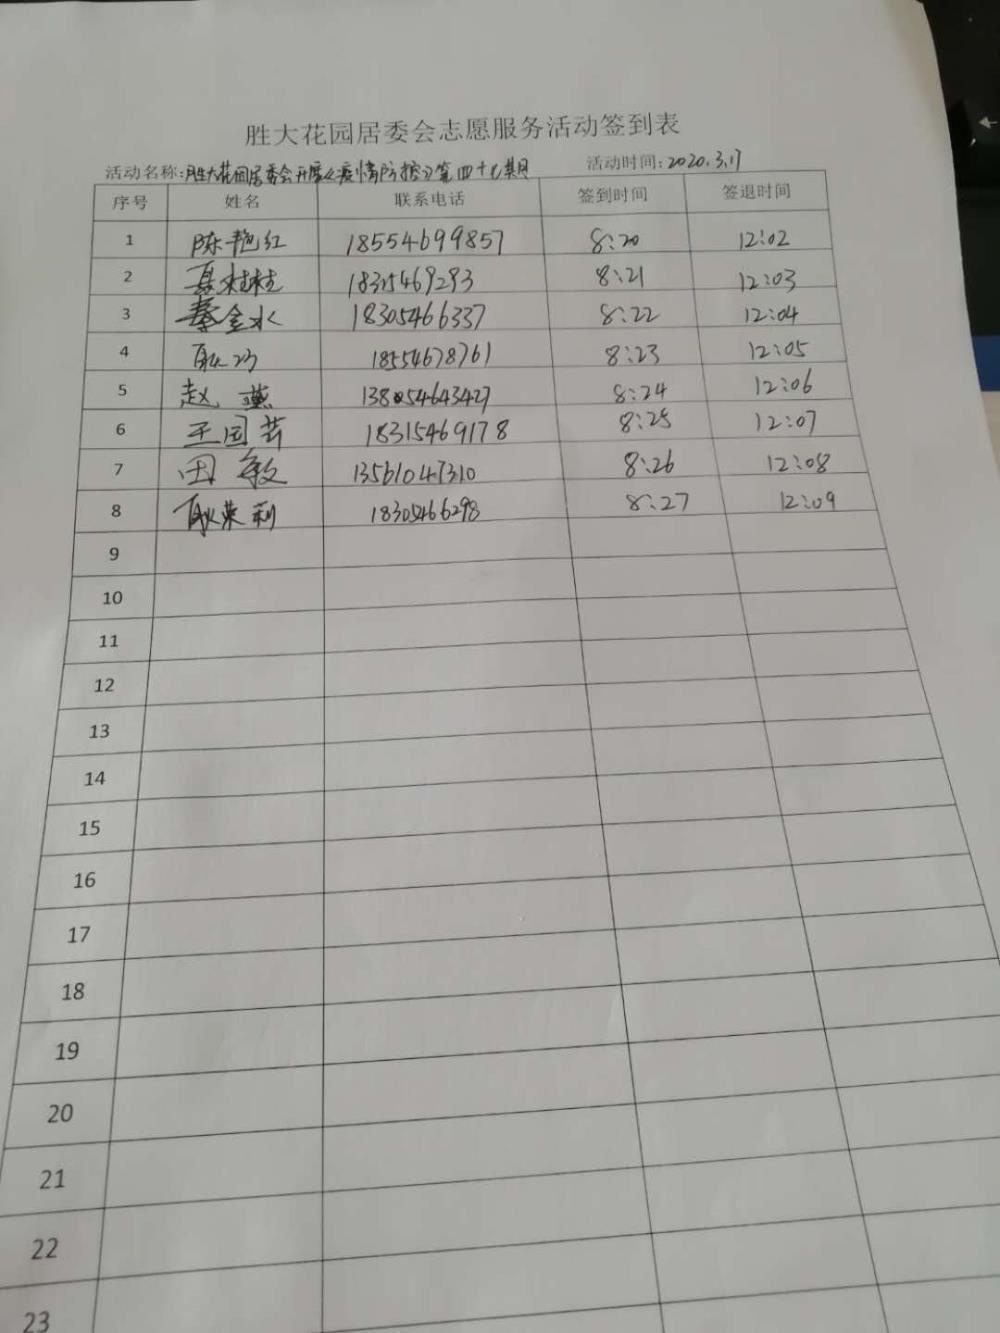 胜大花园居委会志愿服务活动签到表
活动名称:胜大花园居委会开展《疫情防控》第四十七期 活动时间:2020.3.17
序号 姓名 联系电话 签到时间 签退时间
1 陈艳红 18554699857 8:20 12:02
2 夏桂桂 18315469293 8:21 12:03
3 秦金水 18305466337 8:22 12:04
4 18554678761 8:23 12:05
5 赵燕 13805464342 8:24 12:06
6 王国芸 18315469178 8:25 12:07
7 田敏 13561047310 8:26 12:08
8 耿荣利 18305466298 8:27 12:09
9
10
11
12
13
14
15
16
17
18
19
20
21
22
23